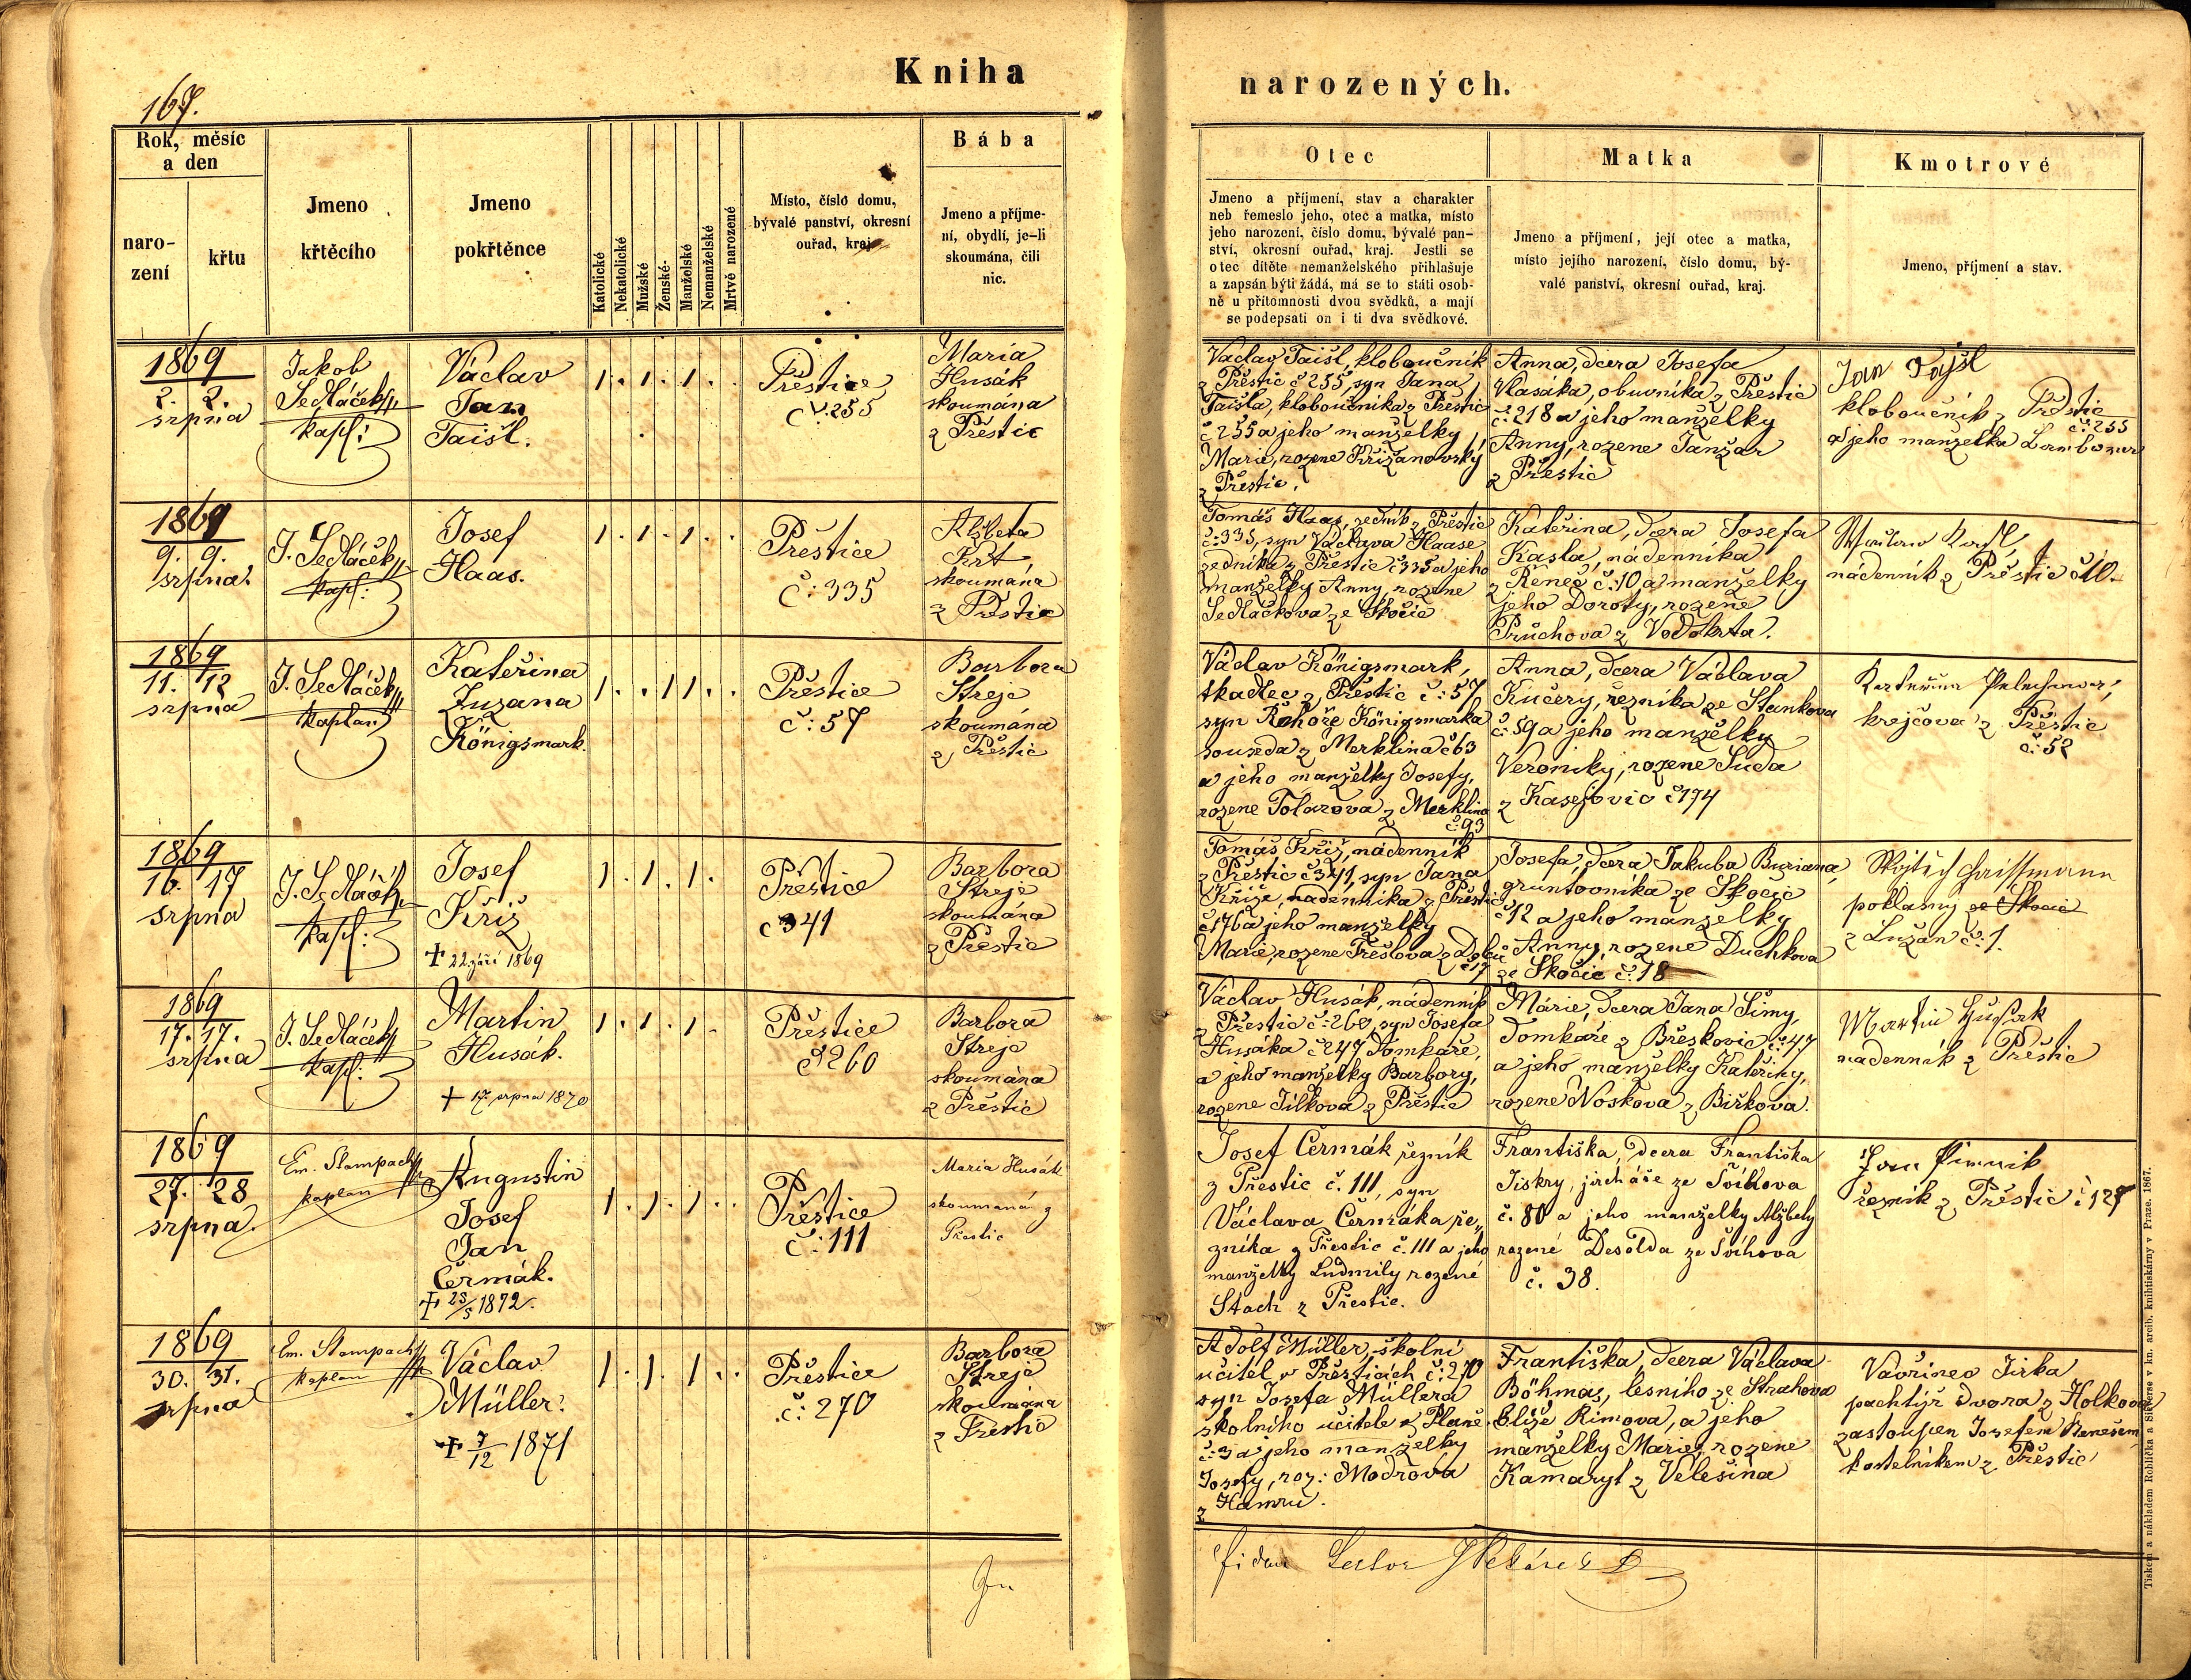 Kniha
narozených.
167.
Rok, měsíc
a den
naro-
zení
křtu
Jmeno
křtěcího
Jmeno
pokřtěnce
Katolické
Nekatolické
Mužské
Ženské
Manželské
Nemanželské
Mrtvě narozené
Místo, číslo domu,
bývalé panství, okresní
ouřad, kraj
Bába
Jmeno a příjme-
ní, obydlí, je-li
skoumána, čili
nic.
Otec
Jmeno a příjmení, stav a charakter
neb řemeslo jeho, otec a matka, místo
jeho narození, číslo domu, bývalé pan-
ství, okresní ouřad, kraj. Jestli se
otec dítěte nemanželského přihlašuje
a zapsán býti žádá, má se to státi osob-
ně u přítomnosti dvou svědků, a mají
se podepsati on i ti dva svědkové.
Matka
Jmeno a příjmení, její otec a matka,
místo jejího narození, číslo domu, bý-
valé panství, okresní ouřad, kraj.
Kmotrové
Jmeno, příjmení a stav.
1869
2. 2.
srpna
Jakob
Sedláček
kapl:
Václav
Jan
Taišl.
1 . 1 . 1 . .
Přestice
č. 255
Maria
Husák
skoumána
z Přestic
Vaclav Taišl, kloboučník
z Přestic č 255, syn Jana
Taišla, kloboučníka z Přestic
č 255 a jeho manželky
Marie, rozene Křižanovský
z Přestic.
Anna, dcera Josefa
Vlasáka, obuvníka z Přestic
č. 218 a jeho manželky
Anny, rozene Janžar
z Přestic
Jan Tajšl
kloboučník z Přestic
č: 255
a jeho manželka
1869
9. 9.
srpna.
J. Sedláček
kapl:
Josef
Haas.
1 . 1 . 1 . .
Přestice
č: 335
Alžbeta
Krt
skoumána
z Přestic
Tomáš Haas, zedník z Přestic
č: 335, syn Václava Haase
zedníka z Přestic č 335 a jeho
manželky Anny, rozene
Sedláčkova ze Skočic
Kateřina, dcera Josefa
Kasla, nádenníka
z Řeneč č: 10 a manželky
jeho Doroty, rozene
Průchova z Vodokrta.
nádenník z Přestic č 10.
1869
11. 12
srpna
J. Sedláček
kaplan
Kateřina
Zuzana
Königsmark.
1 . . 1 1 . .
Přestice
č: 57
Barbora
Strejc
skoumána
z Přestic
Václav Königsmark,
tkadlec z Přestic č: 57
syn Řehoře Königsmarka
souseda z Merklina č 63
a jeho manželky Josefy,
rozene Tolarova z Merklina
č. 93
Anna, dcera Václava
Kučery, řezníka ze Stankova
č: 59 a jeho manželky
Veroniky, rozene Suda
z Kasejovic č 174
krejčova z Přestic
č: 52
1869
16. 17
srpna
J. Sedláček
kapl:
Josef
Kříž
+ 22. září 1869
1 . 1 . 1 .
Přestice
č 341
Barbora
Strejc
skoumána
z Přestic
Tomáš Kříž, nádenník
z Přestic č 341, syn Jana
Kříže, nadenníka z Přestic
č 176 a jeho manželky
Marie, rozene Trešlova z
č 17
Josefa, dcera Jakuba Buriana,
gruntovníka ze Skocic
č 12 a jeho manželky
Anny, rozene Duchkova
ze Skočic č. 18
poklasny ze Skocic
z Lužan č: 1.
1869
17. 17.
srpna
J. Sedláček
kapl:
Martin
Husák.
+ 17. srpna 1870
1 . 1 . 1 .
Přestice
č 260
Barbora
Strejc
skoumána
z Přestic
Václav Husák, nádenník
z Přestic č: 260, syn Josefa
Husáka č 247 domkaře,
a jeho manželky Barbory,
rozene Jílkova z Přestic
Márie, dcera Jana Šimy,
domkaře z Břeskovic č: 47
a jeho manželky Kateřiny,
rozene Noskova z Biřkova.
Martin Husak
nadenník z Přestic
1869
27. 28
srpna.
Em. Stampach
kaplan
Augustin
Josef
Jan
Čermák.
+ 23/5 1872.
1 . 1 . 1 . .
Přestice
č: 111
Maria Husák
skoumaná z
Přestic
Josef Čermák řezník
z Přestic č. 111, syn
Václava Čermáka ře„
zníka z Přestic č. 111 a jeho
manželky Ludmily rozené
Stach z Přestic.
Františka, dcera Františka
Jiskry, jircháře ze Švihova
č. 80 a jeho manželky Alžbety
rozené Desolda ze Švihova
č. 38.
Jan
řezník z Přestic č 127
1869
30. 31.
srpna
Em. Stampach
kaplan
Václav
Müller.
+ 7/12 1871
1 . 1 . 1 . .
Přestice
č: 270
Barbora
Strejc
skoumána
z Přestic
Adolf Müller, školní
učitel v Přesticích č: 270
syn Josefa Müllera
školního učitele z Plané
č: 3 a jeho manželky
Josefy, roz: Modrova
z Hamru.
Františka, dcera Václava
Böhma, lesního ze Strahova
blíže Rimova, a jeho
manželky Marie, rozene
Kamaryt z Velešina
Vavřinec Jirka
pachtýř dvora z Holkova
zastoupen Josefem Benešem
kostelníkem z Přestic
Tiskem a nákladem Rohlíčka a Sieverse v kn. arcib. knihtiskárny v Praze. 1867.